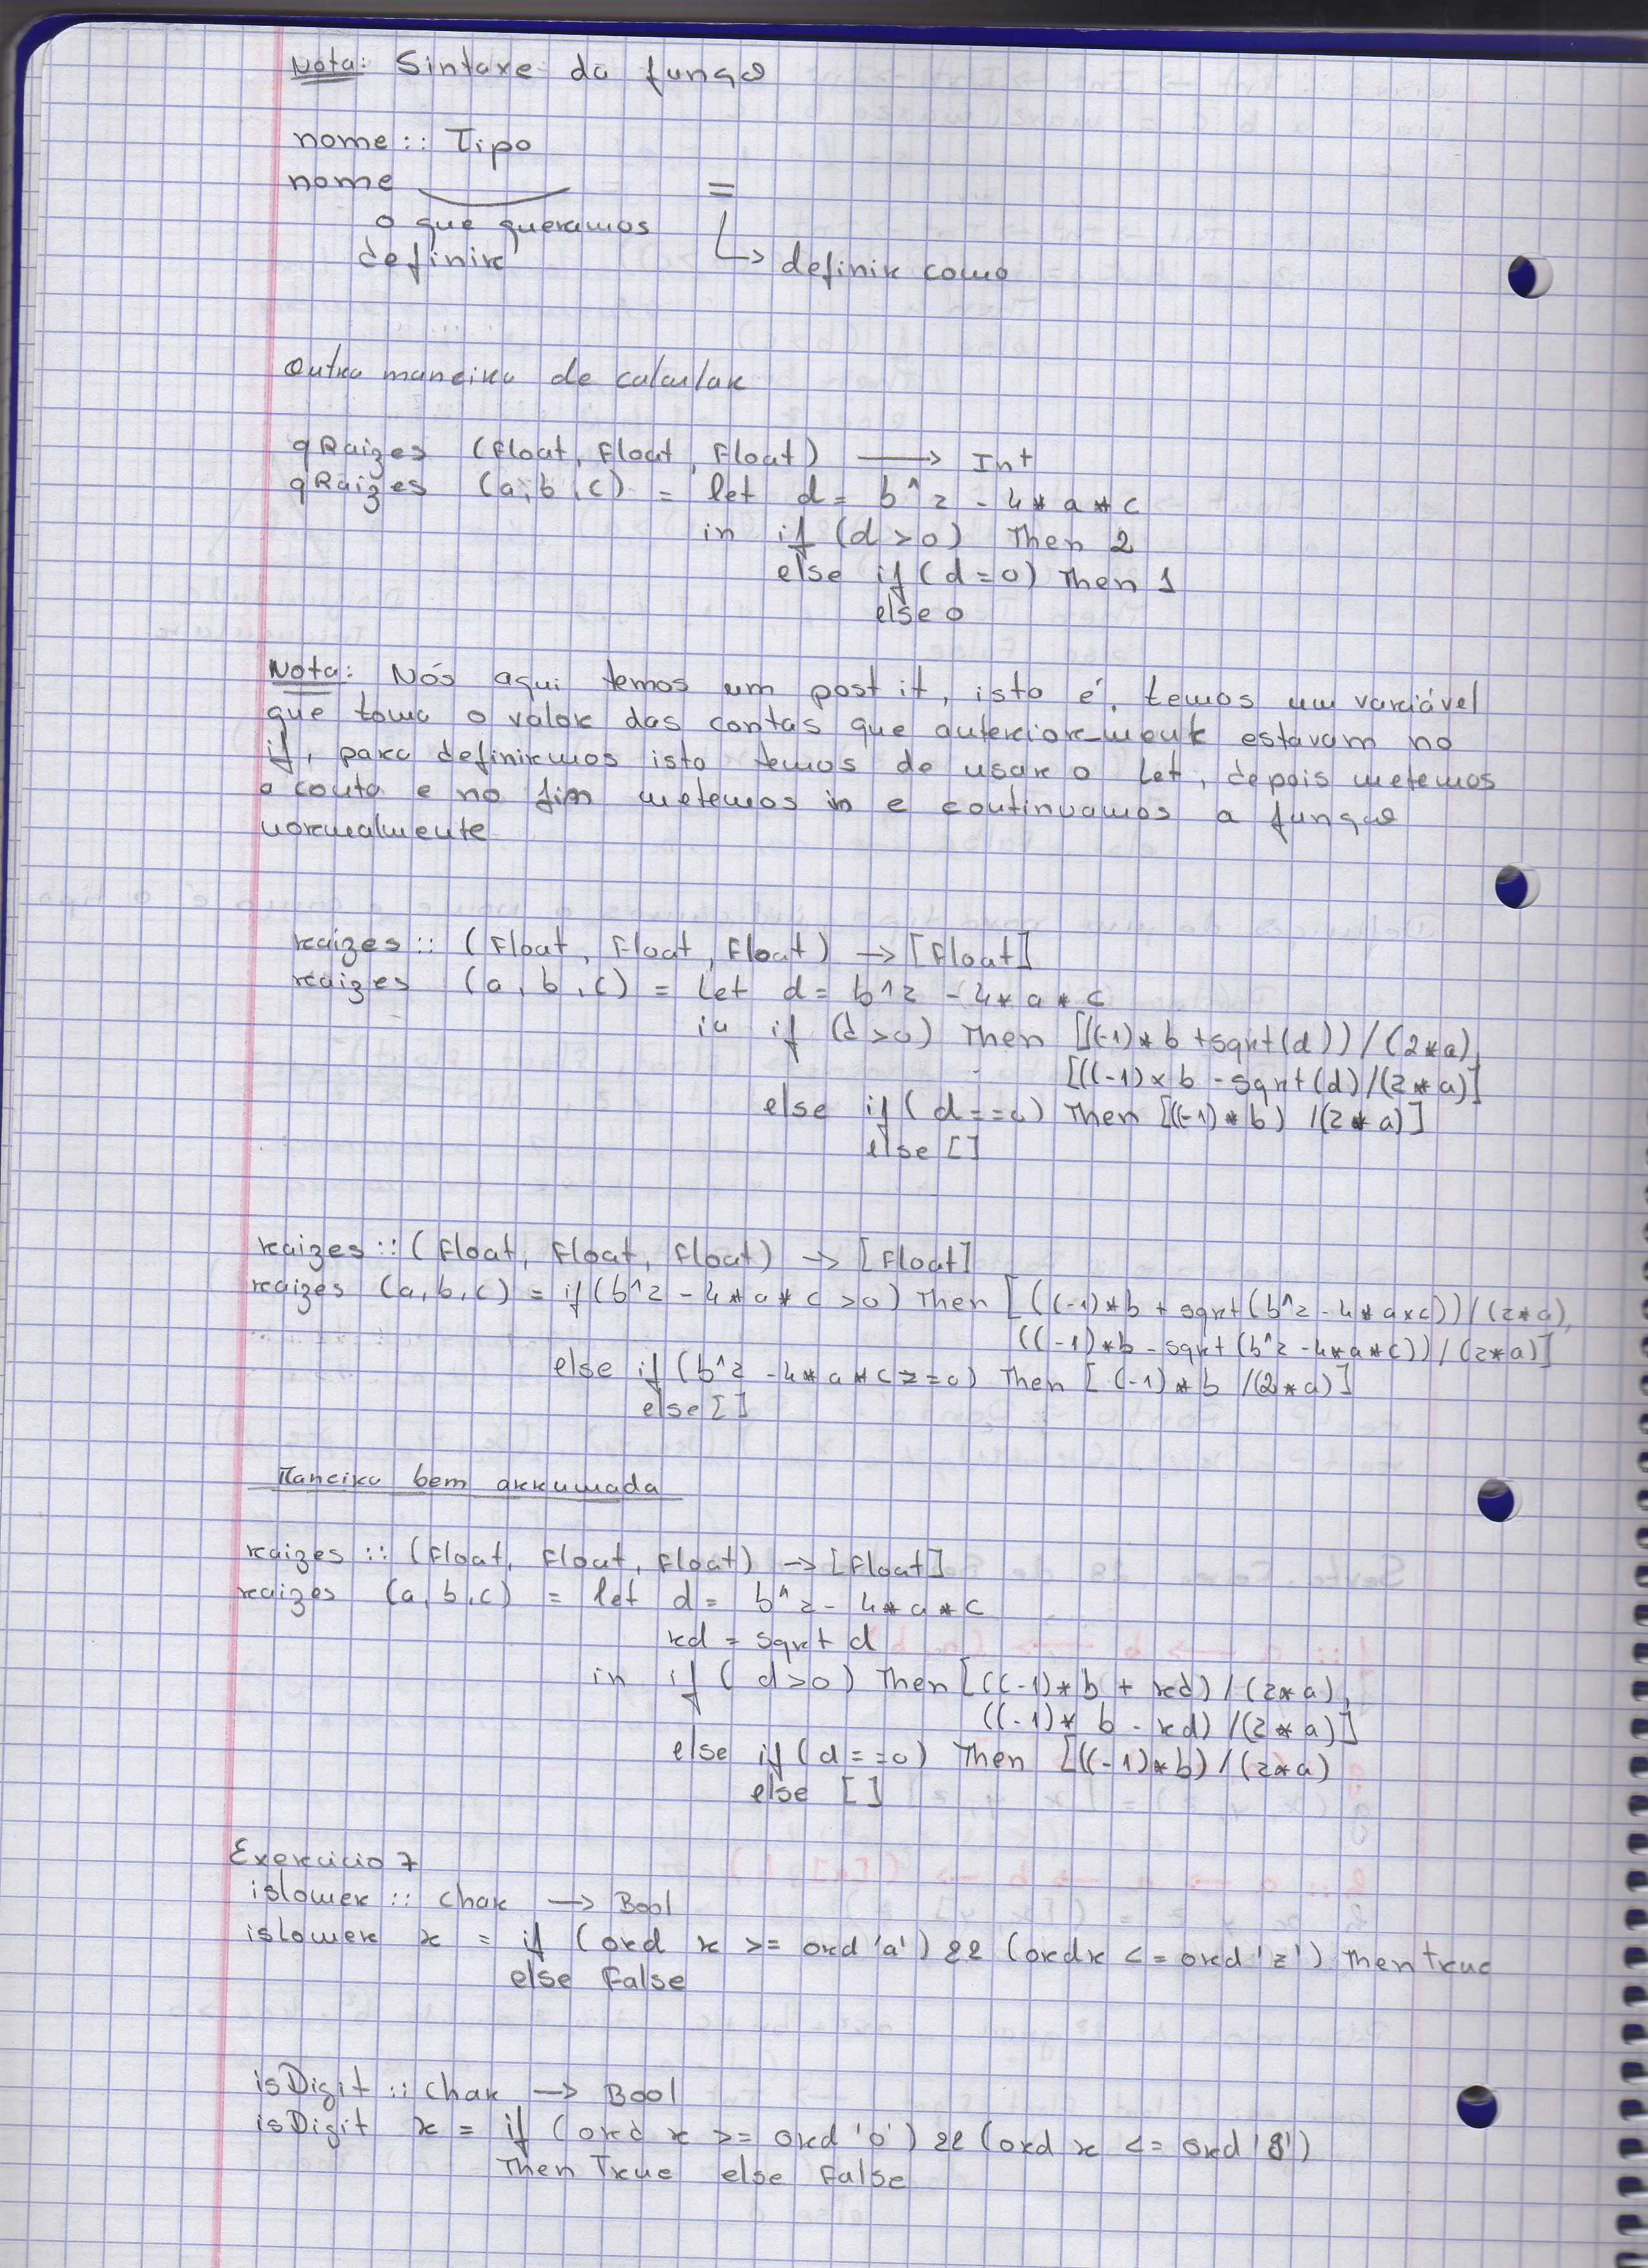 Nota: Sintaxe da função
nome :: Tipo
nome =
o que queramos
definir
↳ definir como
Outra maneira de calcular
qRaizes (Float, Float, Float) → Int
qRaizes (a, b, c) = let d = b^2 - 4*a*c
in if (d > 0) Then 2
else if (d = 0) Then 1
else 0
Nota: Nós aqui temos um post it, isto é, temos um variável
que toma o valor das contas que anteriormente estavam no
if, para definirmos isto temos de usar o let, depois metemos
a conta e no fim metemos in e continuamos a função
normalmente
raizes :: (Float, Float, Float) → [Float]
raizes (a, b, c) = Let d = b^2 - 4*a*c
in if (d > 0) Then [((-1)*b + sqrt(d))/(2*a),
[((-1)×b - sqrt(d)/(2*a)]
else if (d == 0) Then [((-1)*b) /(2*a)]
else []
raizes :: (Float, Float, Float) → [Float]
raizes (a, b, c) = if (b^2 - 4*a*c > 0) Then [((-1)*b + sqrt(b^2 - 4*a×c))/(2*a),
((-1)*b - sqrt(b^2 - 4*a*c))/(2*a)]
else if (b^2 - 4*a*c == 0) Then [(-1)*b /(2*a)]
else []
Maneira bem arrumada
raizes :: (Float, Float, Float) → [Float]
raizes (a, b, c) = let d = b^2 - 4*a*c
rd = sqrt d
in if (d > 0) Then [((-1)*b + rd)/(2*a),
((-1)* b - rd) /(2*a)]
else if (d == 0) Then [((-1)*b)/(2*a)
else []
Exercicio 7
islower :: Char → Bool
isLower x = if (ord x >= ord 'a') && (ord x <= ord 'z') Then True
else False
isDigit :: Char → Bool
isDigit x = if (ord x >= ord '0') && (ord x <= ord '9')
Then True else False